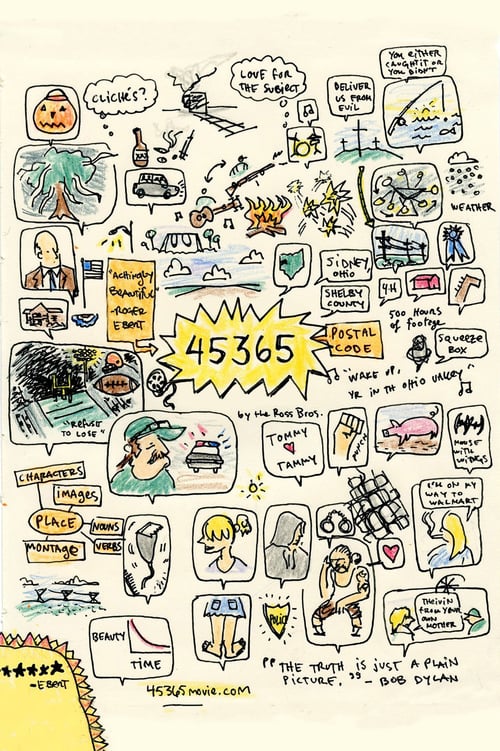 CLICHÉS?
LOVE FOR
THE SUBJECT
DELIVER
US FROM
EVIL
YOU EITHER
CAUGHT IT OR
YOU DIDN'T
WEATHER
"ACHINGLY
BEAUTIFUL"
-ROGER
EBERT
SIDNEY,
OHIO
SHELBY
COUNTY
4-H
500 HOURS
of footage
45365
POSTAL
CODE
SQUEEZE
BOX
"WAKE UP,
YR IN TH OHIO VALLEY"
"REFUSE
TO LOSE"
by the Ross Bros.
TOMMY
TAMMY
HOUSE
WITH
CHARACTERS
IMAGES
PLACE
NOUNS
VERBS
MONTAGE
I'M ON MY
WAY TO
WALMART
POLICE
THEIVIN
FROM YOUR
OWN
MOTHER
BEAUTY
TIME
"THE TRUTH IS JUST A PLAIN
PICTURE." - BOB DYLAN
45365movie.com
★★★★★
-EBERT